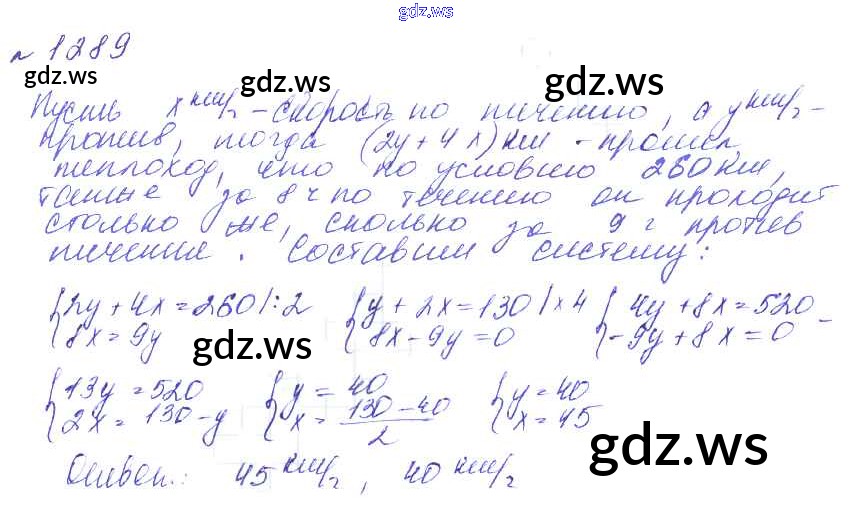 gdz.ws
№ 1289
gdz.ws gdz.ws gdz.ws
Пусть x км/ч - скорость по течению, а y км/ч -
против, тогда (2y + 4x) км - прошел
теплоход, что по условию 260 км,
также за 8 ч по течению он проходит
столько же, сколько за 9 ч против
течения. Составим систему:
{2y + 4x = 260 |:2 {y + 2x = 130 | x 4 {4y + 8x = 520 -
{8x = 9y {8x - 9y = 0 {-9y + 8x = 0
gdz.ws
{13y = 520 {y = 40 {y = 40
{2x = 130 - y {x = (130 - 40)/2 {x = 45
gdz.ws
Ответ: 45 км/ч, 40 км/ч